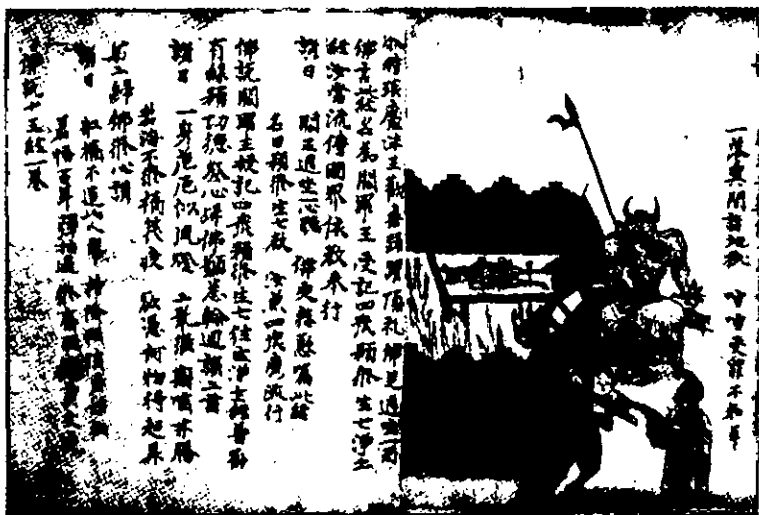 一墮冥間諸地獄 喑喑受罪不知年
尒時琰魔法王歡喜頂禮退坐一面
佛言此經名為閻羅王受記四衆預修生七淨土
經汝當流傳國界依教奉行
讚曰 閻王退坐一心聽 佛更慇懃囑此經
名曰預修生七教 汝兼四衆廣流行
佛說閻羅王授記四衆預修生七往生淨土經普勸
有緣預功德發心歸佛願息輪迴讚二首
讚曰 一身危厄似風燈 二鼠侵欺嚙井藤
苦海不修橋筏渡 欲憑何物得超昇
第二歸佛修心讚
讚曰 船橋不造此人癡
若悟百年彈指過
佛說十王經一卷